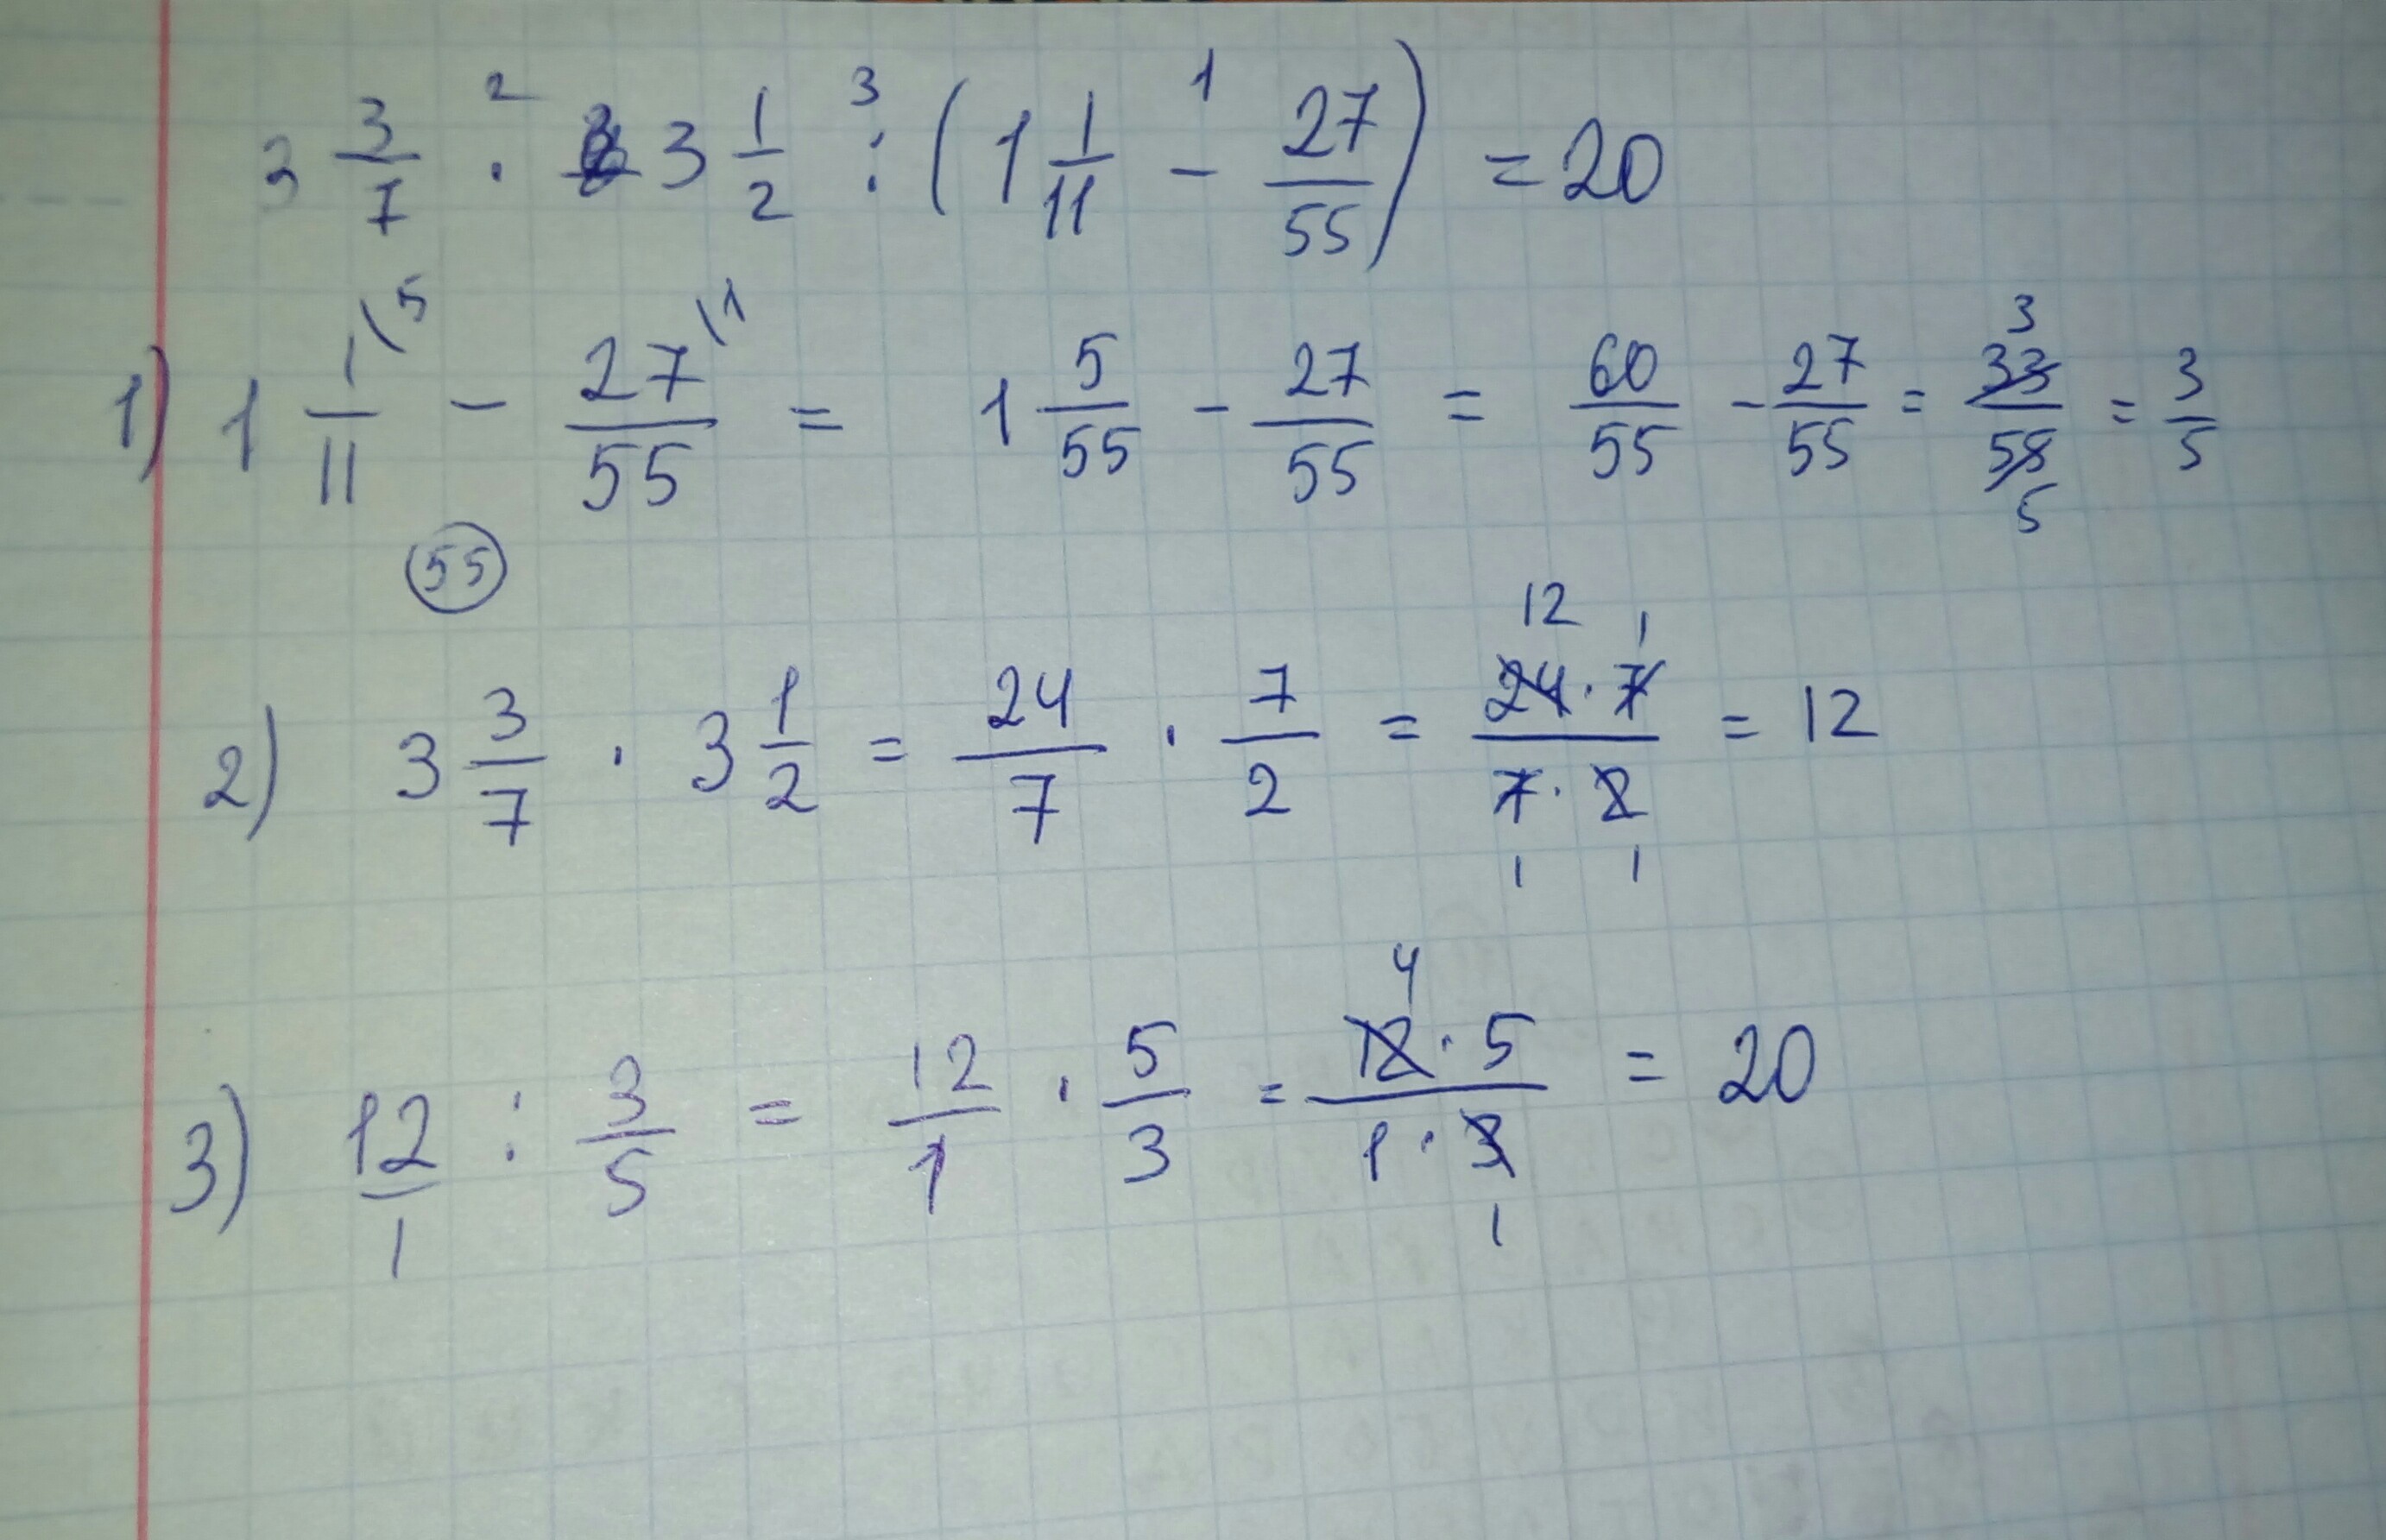 3 3/7 · 3 1/2 : (1 1/11 - 27/55) = 20
2 3 1
1) 1 1/11 \5 - 27/55 \1 = 1 5/55 - 27/55 = 60/55 - 27/55 = 33/55 = 3/5
3 5
55
2) 3 3/7 · 3 1/2 = 24/7 · 7/2 = 24·7/7·2 = 12
12 1 1 1
3) 12/1 : 3/5 = 12/1 · 5/3 = 12·5/1·3 = 20
4 1